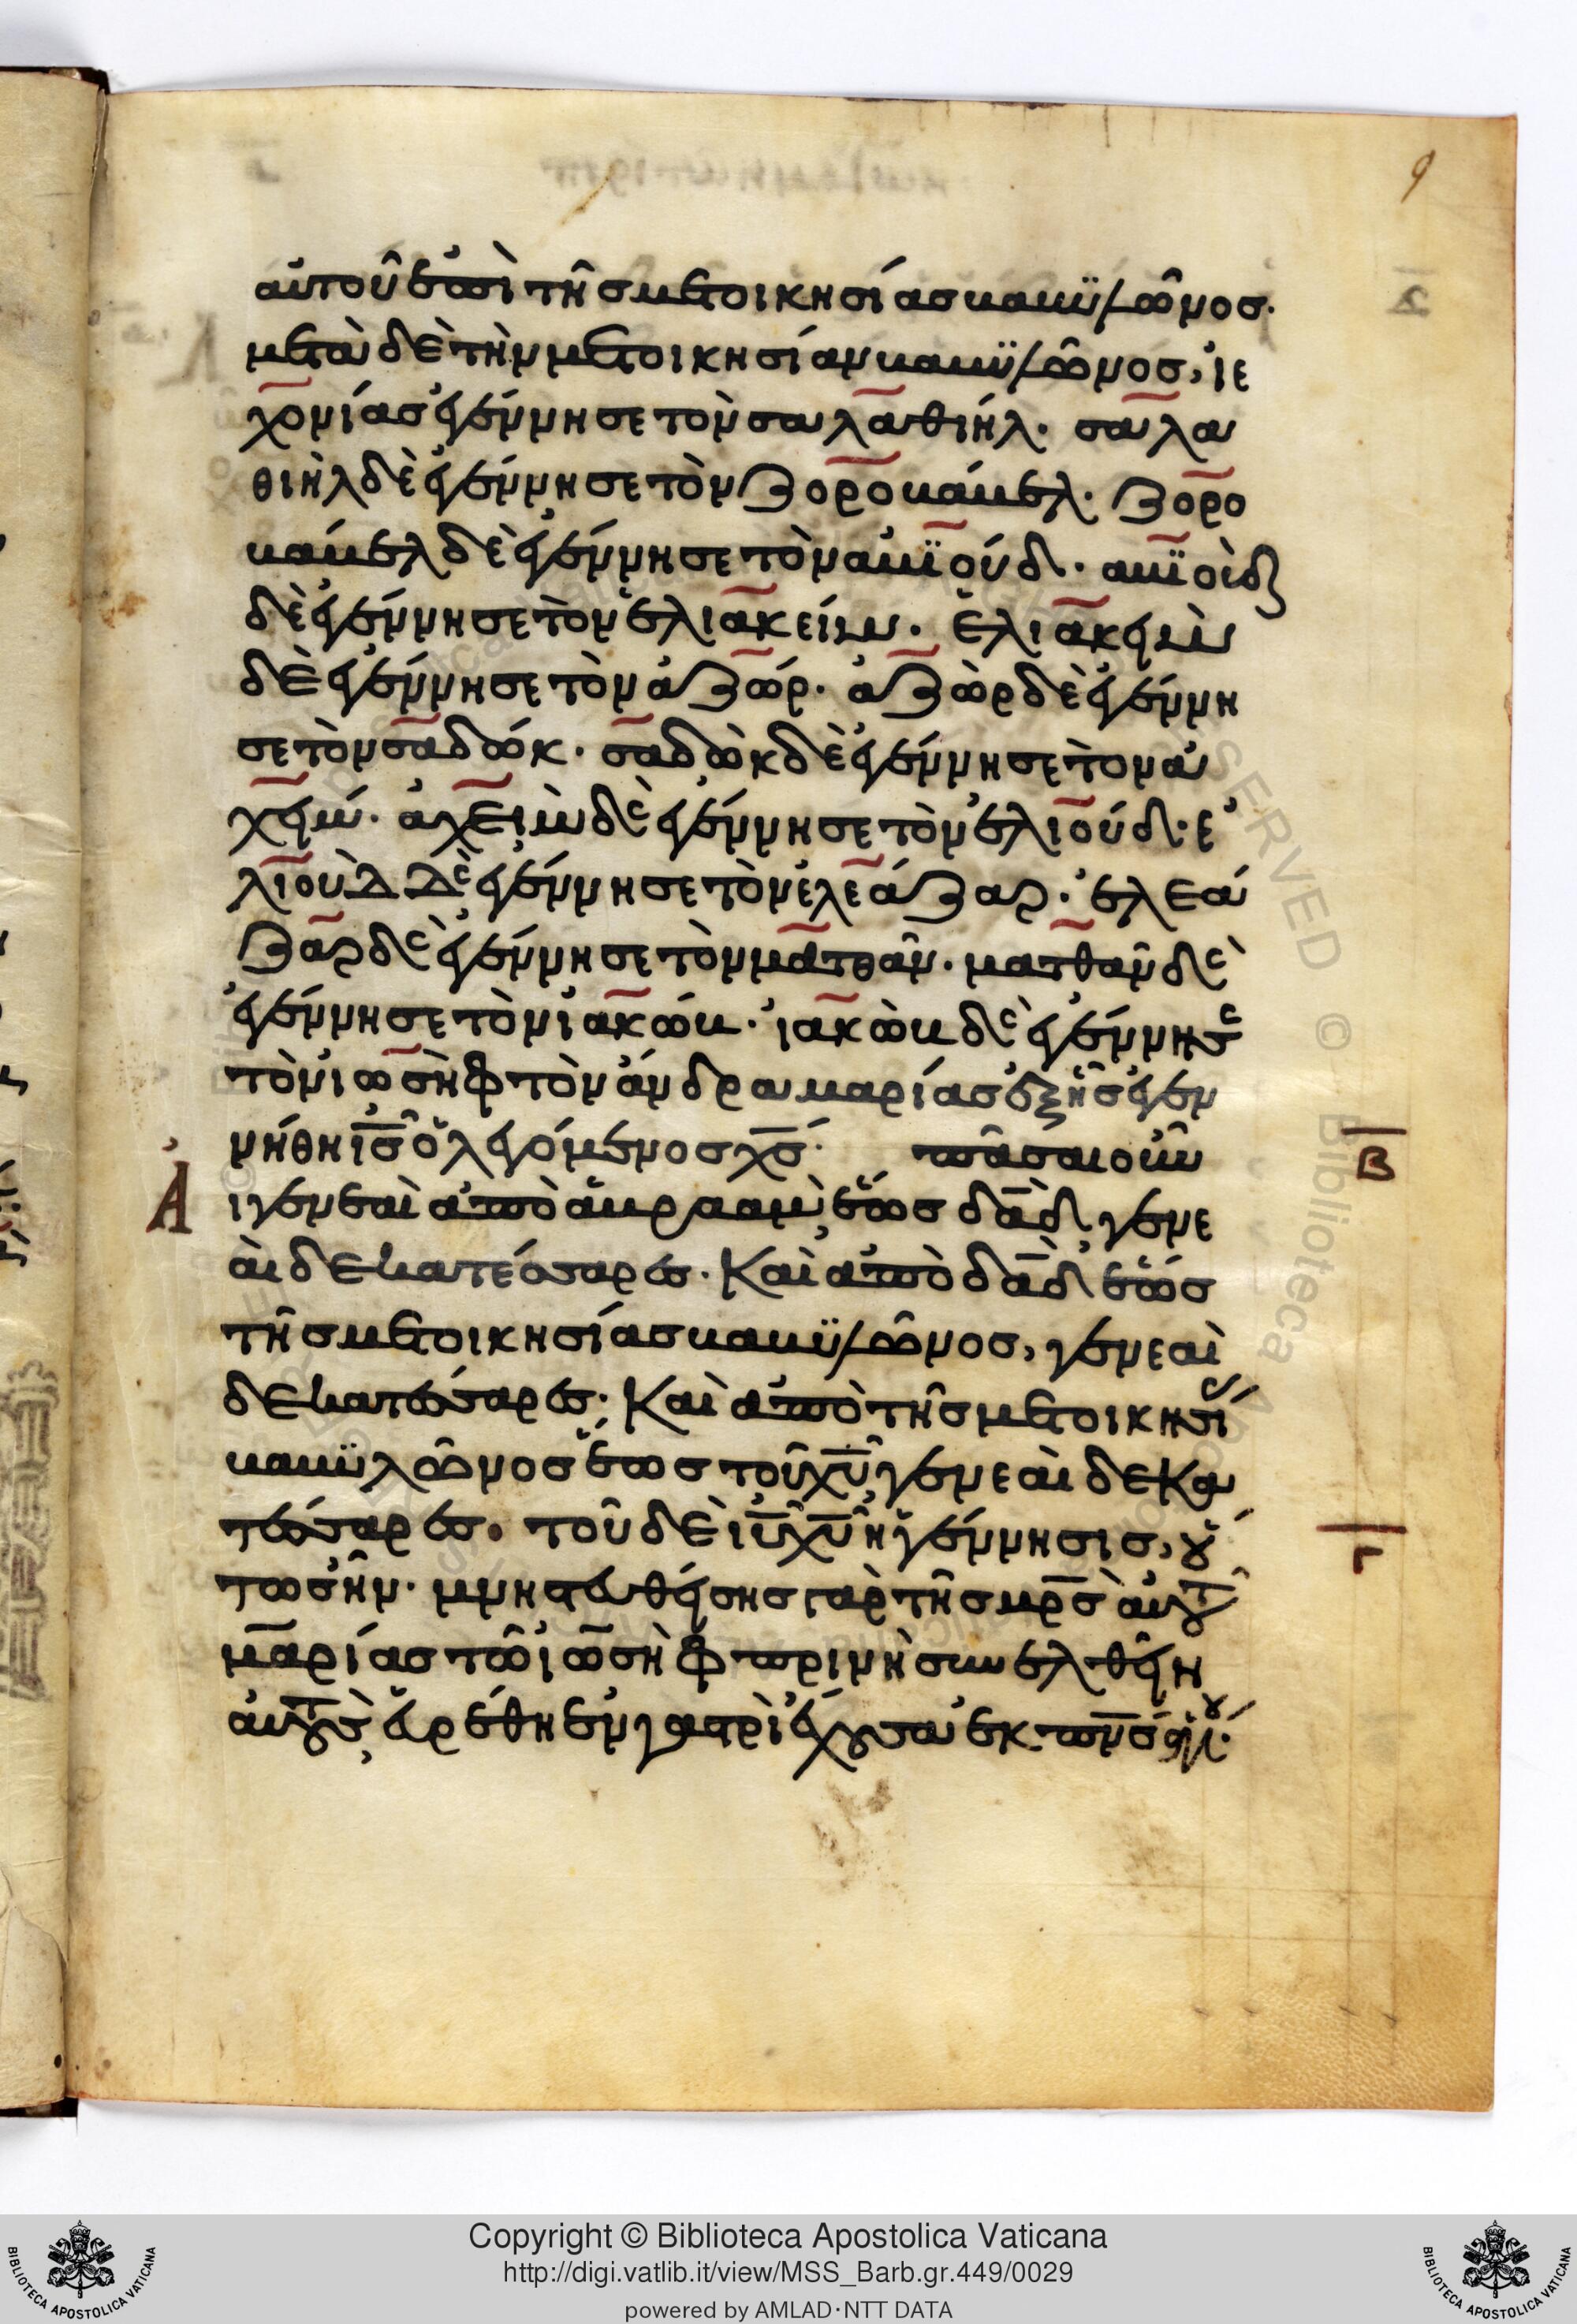 9
αὐτοῦ ἐπὶ τῆς μετοικησίας βαβυλῶνος·
μετὰ δὲ τὴν μετοικησίαν βαβυλῶνος, ἰε
χονίας ἐγέννησε τὸν σαλαθιήλ· σαλα
θιὴλ δὲ ἐγέννησε τὸν ζοροβάβελ· ζορο
βάβελ δὲ ἐγέννησε τὸν ἀβϊούδ· ἀβϊοὺδ
δὲ ἐγέννησε τὸν ἐλιακείμ· ἐλιακεὶμ
δὲ ἐγέννησε τὸν ἀζώρ· ἀζὼρ δὲ ἐγέννη
σε τὸν σαδώκ· σαδὼκ δὲ ἐγέννησε τὸν ἀ
χείμ· ἀχεὶμ δὲ ἐγέννησε τὸν ἐλιούδ· ἐ
λιοὺδ δὲ ἐγέννησε τὸν ἐλεάζαρ· ἐλεά
ζαρ δὲ ἐγέννησε τὸν ματθάν· ματθὰν δὲ
ἐγέννησε τὸν ἰακώβ· ἰακὼβ δὲ ἐγέννησε
τὸν ἰωσὴφ τὸν ἄνδρα μαρίας ἐξ ἧς ἐγεν
νήθη ισ̅ ὁ λεγόμενος χσ̅· πᾶσαι οὖν
Β
Α
ι γενεαὶ ἀπὸ ἀβραὰμ ἕως δαδ̅, γενε
αὶ δεκατέσσαρες· Καὶ ἀπὸ δαδ̅ ἕως
τῆς μετοικησίας βαβυλῶνος, γενεαὶ
δεκατέσσαρες· Καὶ ἀπὸ τῆς μετοικησί
βαβυλῶνος ἕως τοῦ χυ̅ γενεαὶ δεκα
τέσσαρες· τοῦ δὲ ιυ̅ χυ̅ ἡ γέννησις, οὕ
Γ
τως ἦν· μνηστευθείσης γὰρ τῆς μρσ̅ αὐτοῦ
μαρίας τῶ ἰωσὴφ πρὶν ἢ συνελθεῖν
αὐτοὺς, εὑρέθη ἐν γαστρὶ ἔχουσα ἐκ πνσ̅ ἁγίου·
Copyright © Biblioteca Apostolica Vaticana
http://digi.vatlib.it/view/MSS_Barb.gr.449/0029
powered by AMLAD·NTT DATA
BIBLIOTECA APOSTOLICA VATICANA
BIBLIOTECA APOSTOLICA VATICANA